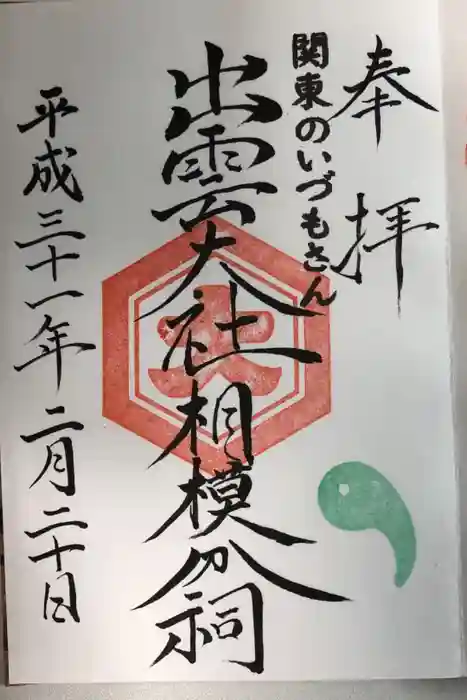 奉拝
関東のいづもさん
出雲大社相模分祠
平成三十一年二月二十日
大